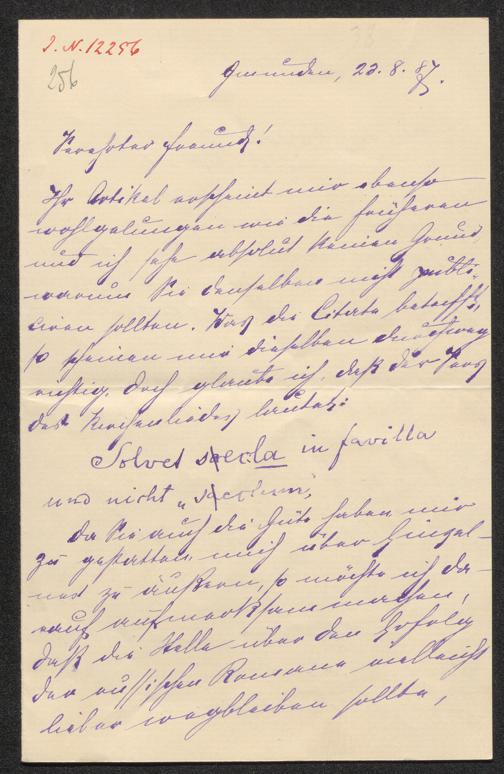 J. N. 12256
256
Gmunden, 23. 8. 87.
Verehrter Freund!
Ihr Artikel erscheint mir ebenso
wohlgelungen wie die früheren
und ich sehe absolut keinen Grund
warum Sie denselben nicht publi-
ciren sollten. Was die Citate betrifft,
so scheinen mir dieselben durchweg
richtig, doch glaube ich, daß der Vers
des Kirchenliedes lautet:
Solvet saecla in favilla
und nicht „saeclum“,
Da Sie auch die Güte haben mir
zu gestatten, mich über Einzel-
nes zu äußern, so möchte ich da-
rauf aufmerksam machen,
daß die Stelle über den Erfolg
der russischen Romane vielleicht
lieber wegbleiben sollte,